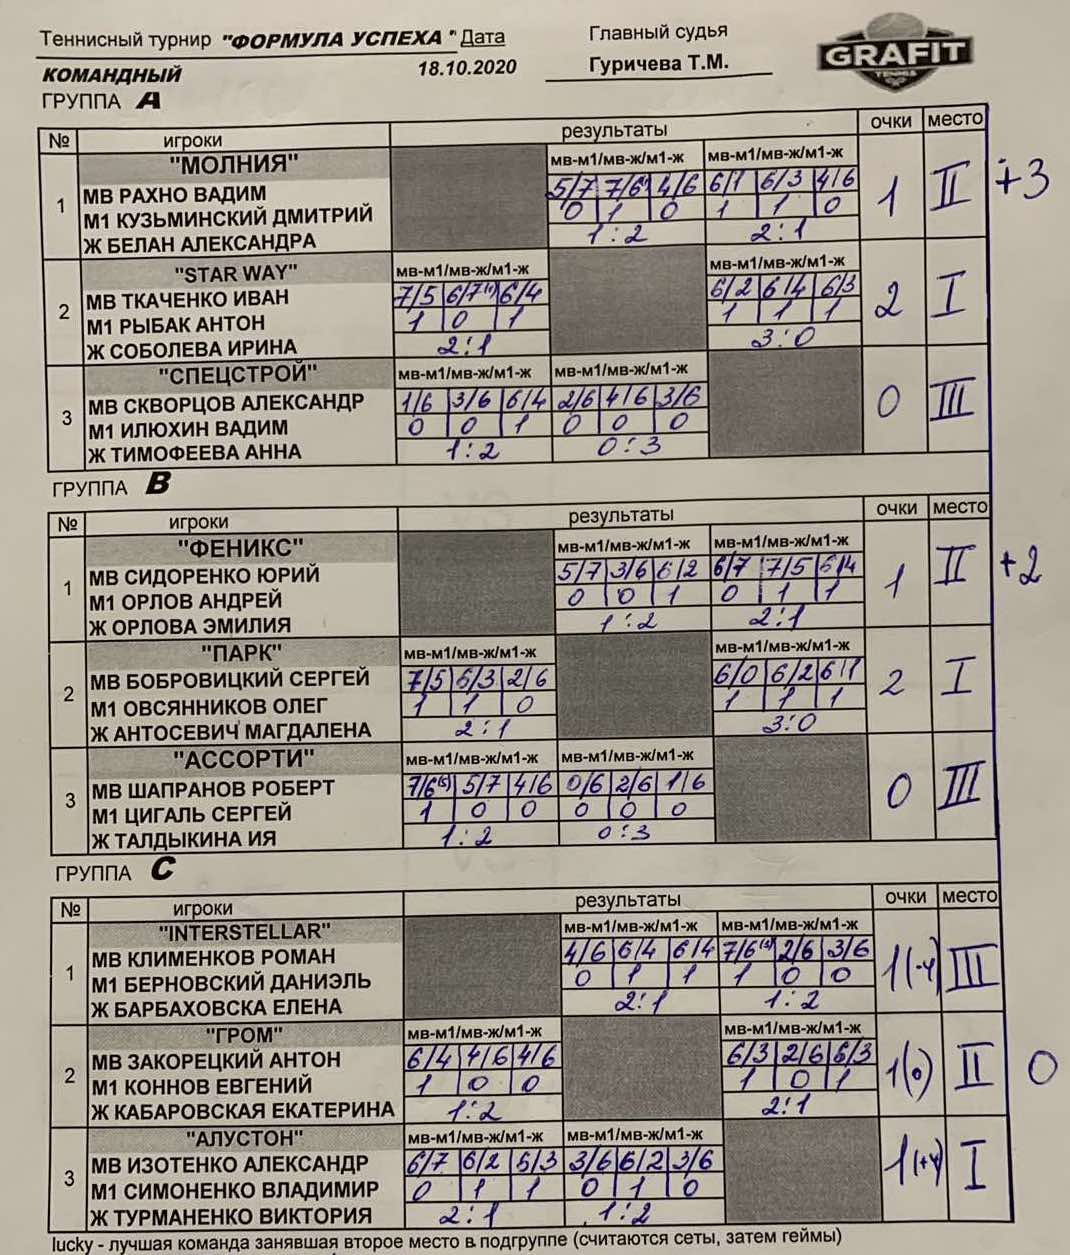 Теннисный турнир "ФОРМУЛА УСПЕХА" Дата
Главный судья
GRAFIT
TENNIS
КОМАНДНЫЙ
18.10.2020
Гуричева Т.М.
ГРУППА А
№ игроки результаты очки место
"МОЛНИЯ" мв-м1/мв-ж/м1-ж мв-м1/мв-ж/м1-ж
1 МВ РАХНО ВАДИМ 5/7 7/6 4/6 6/1 6/3 4/6 1 II +3
М1 КУЗЬМИНСКИЙ ДМИТРИЙ 0 1 0 1 1 0
Ж БЕЛАН АЛЕКСАНДРА 1:2 2:1
"STAR WAY" мв-м1/мв-ж/м1-ж мв-м1/мв-ж/м1-ж
2 МВ ТКАЧЕНКО ИВАН 7/5 6/7 6/4 6/2 6/4 6/3 2 I
М1 РЫБАК АНТОН 1 0 1 1 1 1
Ж СОБОЛЕВА ИРИНА 2:1 3:0
"СПЕЦСТРОЙ" мв-м1/мв-ж/м1-ж мв-м1/мв-ж/м1-ж
3 МВ СКВОРЦОВ АЛЕКСАНДР 1/6 3/6 6/4 2/6 4/6 3/6 0 III
М1 ИЛЮХИН ВАДИМ 0 0 1 0 0 0
Ж ТИМОФЕЕВА АННА 1:2 0:3
ГРУППА В
№ игроки результаты очки место
"ФЕНИКС" мв-м1/мв-ж/м1-ж мв-м1/мв-ж/м1-ж
1 МВ СИДОРЕНКО ЮРИЙ 5/7 3/6 6/2 6/7 7/5 6/4 1 II +2
М1 ОРЛОВ АНДРЕЙ 0 0 1 0 1 1
Ж ОРЛОВА ЭМИЛИЯ 1:2 2:1
"ПАРК" мв-м1/мв-ж/м1-ж мв-м1/мв-ж/м1-ж
2 МВ БОБРОВИЦКИЙ СЕРГЕЙ 7/5 6/3 2/6 6/0 6/2 6/1 2 I
М1 ОВСЯННИКОВ ОЛЕГ 1 1 0 1 1 1
Ж АНТОСЕВИЧ МАГДАЛЕНА 2:1 3:0
"АССОРТИ" мв-м1/мв-ж/м1-ж мв-м1/мв-ж/м1-ж
3 МВ ШАПРАНОВ РОБЕРТ 7/6(5) 5/7 4/6 0/6 2/6 1/6 0 III
М1 ЦИГАЛЬ СЕРГЕЙ 1 0 0 0 0 0
Ж ТАЛДЫКИНА ИЯ 1:2 0:3
ГРУППА С
№ игроки результаты очки место
"INTERSTELLAR" мв-м1/мв-ж/м1-ж мв-м1/мв-ж/м1-ж
1 МВ КЛИМЕНКОВ РОМАН 4/6 6/4 6/4 7/6 2/6 3/6 1(-4) III
М1 БЕРНОВСКИЙ ДАНИЭЛЬ 0 1 1 1 0 0
Ж БАРБАХОВСКА ЕЛЕНА 2:1 1:2
"ГРОМ" мв-м1/мв-ж/м1-ж мв-м1/мв-ж/м1-ж
2 МВ ЗАКОРЕЦКИЙ АНТОН 6/4 4/6 4/6 6/3 2/6 6/3 1(0) II 0
М1 КОННОВ ЕВГЕНИЙ 1 0 0 1 0 1
Ж КАБАРОВСКАЯ ЕКАТЕРИНА 1:2 2:1
"АЛУСТОН" мв-м1/мв-ж/м1-ж мв-м1/мв-ж/м1-ж
3 МВ ИЗОТЕНКО АЛЕКСАНДР 6/7 6/2 6/3 3/6 6/2 3/6 1(+4) I
М1 СИМОНЕНКО ВЛАДИМИР 0 1 1 0 1 0
Ж ТУРМАНЕНКО ВИКТОРИЯ 2:1 1:2
lucky - лучшая команда занявшая второе место в подгруппе (считаются сеты, затем геймы)